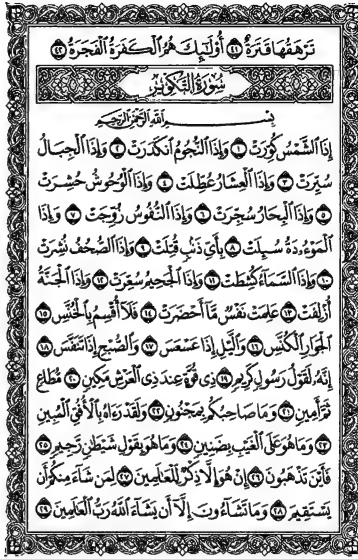 تَرْهَقُهَا قَتَرَةٌ ٤١ أُوْلَٰٓئِكَ هُمُ ٱلْكَفَرَةُ ٱلْفَجَرَةُ ٤٢
سُورَةُ ٱلتَّكْوِيرِ
بِسْمِ ٱللَّهِ ٱلرَّحْمَٰنِ ٱلرَّحِيمِ
إِذَا ٱلشَّمْسُ كُوِّرَتْ ١ وَإِذَا ٱلنُّجُومُ ٱنكَدَرَتْ ٢ وَإِذَا ٱلْجِبَالُ
سُيِّرَتْ ٣ وَإِذَا ٱلْعِشَارُ عُطِّلَتْ ٤ وَإِذَا ٱلْوُحُوشُ حُشِرَتْ
٥ وَإِذَا ٱلْبِحَارُ سُجِّرَتْ ٦ وَإِذَا ٱلنُّفُوسُ زُوِّجَتْ ٧ وَإِذَا
ٱلْمَوْءُۥدَةُ سُئِلَتْ ٨ بِأَىِّ ذَنۢبٍ قُتِلَتْ ٩ وَإِذَا ٱلصُّحُفُ نُشِرَتْ
١٠ وَإِذَا ٱلسَّمَآءُ كُشِطَتْ ١١ وَإِذَا ٱلْجَحِيمُ سُعِّرَتْ ١٢ وَإِذَا ٱلْجَنَّةُ
أُزْلِفَتْ ١٣ عَلِمَتْ نَفْسٌ مَّآ أَحْضَرَتْ ١٤ فَلَآ أُقْسِمُ بِٱلْخُنَّسِ ١٥
ٱلْجَوَارِ ٱلْكُنَّسِ ١٦ وَٱلَّيْلِ إِذَا عَسْعَسَ ١٧ وَٱلصُّبْحِ إِذَا تَنَفَّسَ ١٨
إِنَّهُۥ لَقَوْلُ رَسُولٍ كَرِيمٍ ١٩ ذِى قُوَّةٍ عِندَ ذِى ٱلْعَرْشِ مَكِينٍ ٢٠ مُّطَاعٍ
ثَمَّ أَمِينٍ ٢١ وَمَا صَاحِبُكُم بِمَجْنُونٍ ٢٢ وَلَقَدْ رَءَاهُ بِٱلْأُفُقِ ٱلْمُبِينِ
٢٣ وَمَا هُوَ عَلَى ٱلْغَيْبِ بِضَنِينٍ ٢٤ وَمَا هُوَ بِقَوْلِ شَيْطَٰنٍ رَّجِيمٍ ٢٥
فَأَيْنَ تَذْهَبُونَ ٢٦ إِنْ هُوَ إِلَّا ذِكْرٌ لِّلْعَٰلَمِينَ ٢٧ لِمَن شَآءَ مِنكُمْ أَن
يَسْتَقِيمَ ٢٨ وَمَا تَشَآءُونَ إِلَّآ أَن يَشَآءَ ٱللَّهُ رَبُّ ٱلْعَٰلَمِينَ ٢٩